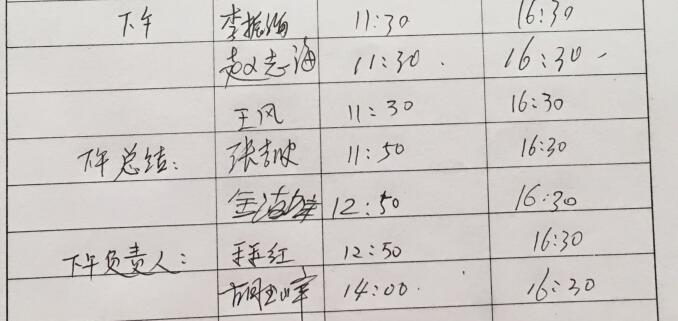 下午 李振海 11:30 16:30
赵志海 11:30 16:30
王风 11:30 16:30
下午总结: 张吉波 11:50 16:30
金海 12:50 16:30
下午负责人: 红 12:50 16:30
胡 14:00 16:30